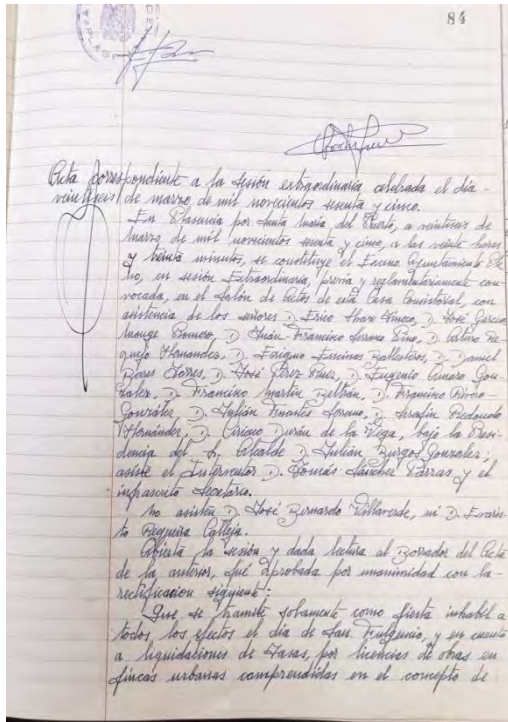 84
Acta correspondiente a la sesión extraordinaria celebrada el día
veintiseis de marzo, de mil novecientos sesenta y cinco.
En Plasencia por Santa María del Puerto, a veintiseis de
marzo de mil novecientos sesenta y cinco, a las veinte horas
y treinta minutos, se constituye el Excmo Ayuntamiento Ple-
no, en sesión Extraordinaria, previa y reglamentariamente con-
vocada, en el Salón de Actos de esta Casa Consistorial, con
asistencia de los señores D. D. José García
Monge Romero, D. Juan-Francisco Serrano Pino, D. Arturo Re-
quejo Hernandez, D. Enrique Encinas Ballesteros, D. Daniel
Torres, D. José Pérez D. Eugenio Amaro Gon-
zález, D. Francisco Martín Beltrán, D. Francisco
González, D. Julián Fuentes Lorenzo, D. Serafín Redondo
Hernández, D. Ciriaco Durán de la Vega, bajo la Presi-
dencia del Sr. Alcalde D. Julián Burgos González,
asiste el Interventor D. Tomás Sánchez Parras y el
infrascrito Secretario.
No asisten D. José Bernardo Villaverde, ni D. Evaris-
to Regueira Calleja.
Abierta la sesión y dada lectura al Borrador del Acta
de la anterior, fué aprobada por unanimidad con la
rectificación siguiente:
Que se tramite solamente como fiesta inhabil a
todos los efectos el día de San Fulgencio, y en cuanto
a liquidaciones de Tasas, por licencias de obras en
fincas urbanas comprendidas en el concepto de